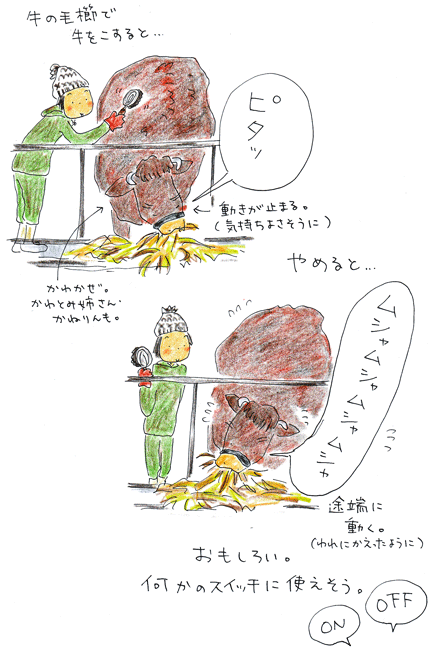 牛の毛櫛で
牛をこすると…
ピタッ
動きが止まる。
(気持ちよさそうに)
かわかぜ。
かわとみ姉さん・
かねりんも。
やめると…
ムシャムシャムシャムシャ
途端に
動く。
(われにかえったように)
おもしろい。
何かのスイッチに使えそう。
ON
OFF